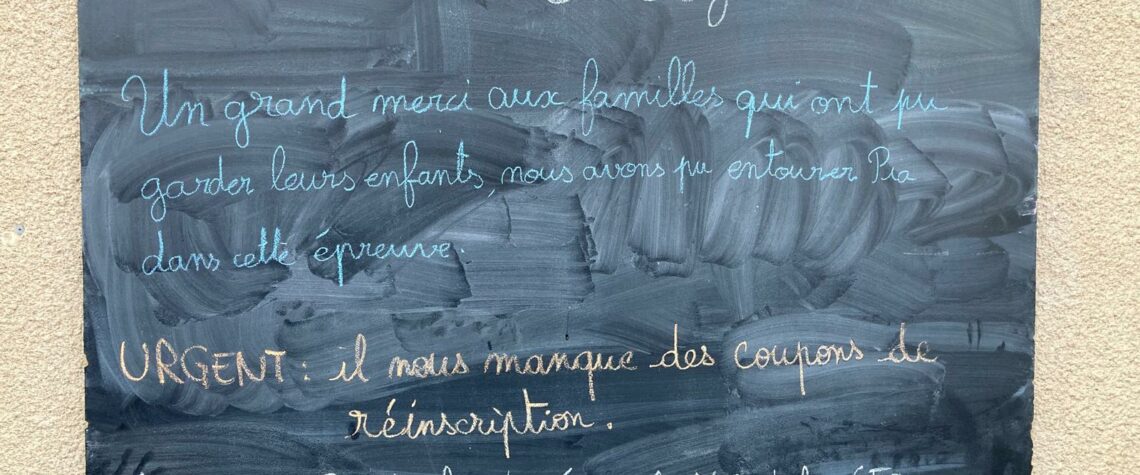 Un grand merci aux familles qui ont pu
garder leurs enfants, nous avons pu entourer Pia
dans cette épreuve.
URGENT : il nous manque des coupons de
réinscription.